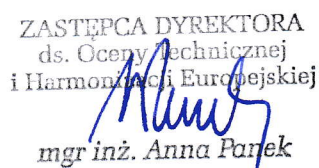 ZASTĘPCA DYREKTORA
ds. Oceny Technicznej
i Harmonizacji Europejskiej
mgr inż. Anna Panek